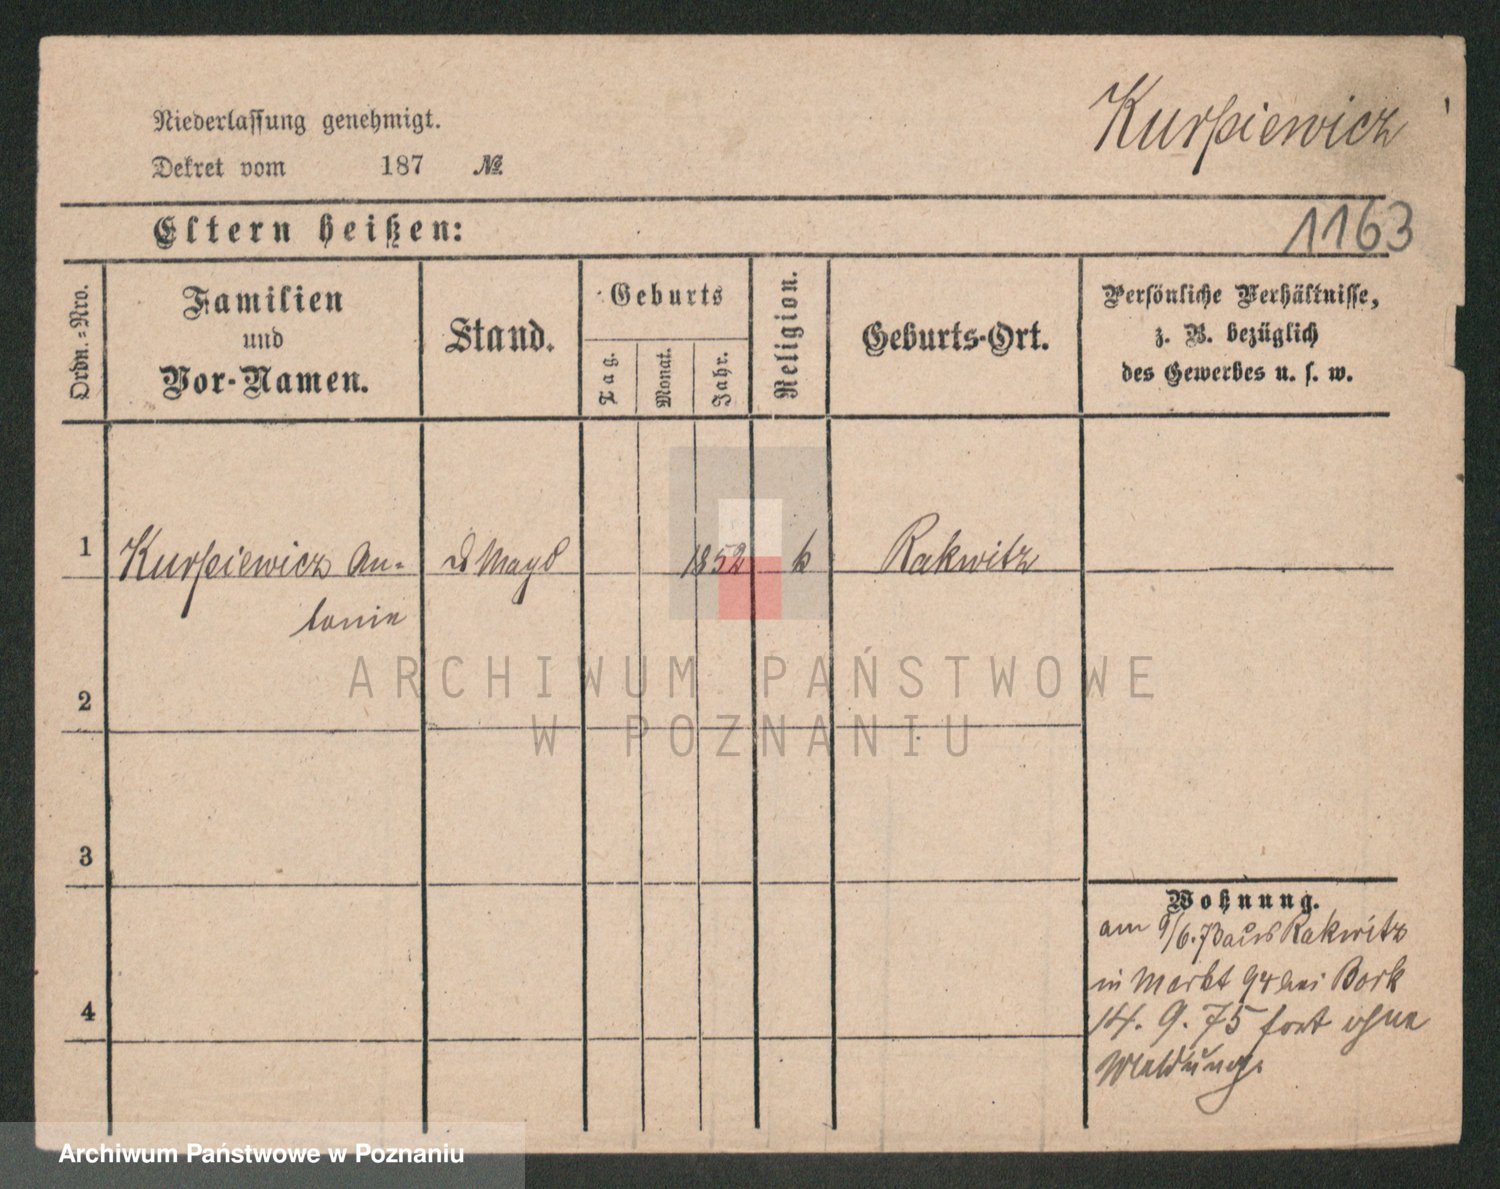 Kurpiewicz
Niederlassung genehmigt.
Dekret vom 187 №
Eltern heißen:
1163
Ordn.-Nro.
Familien
und
Vor-Namen.
Stand.
Geburts
Tag.
Monat.
Jahr.
Religion.
Geburts-Ort.
Persönliche Verhältnisse,
z. B. bezüglich
des Gewerbes u. s. w.
1 Kurpiewicz An- Magd 1852 k Rakwitz
tonie
2
3
4
Wohnung.
am 9/6.73 aus Rakwitz
in Markt 94 bei Bork
14. 9. 75 fort ohne
Meldung.
ARCHIWUM PAŃSTWOWE
W POZNANIU
Archiwum Państwowe w Poznaniu